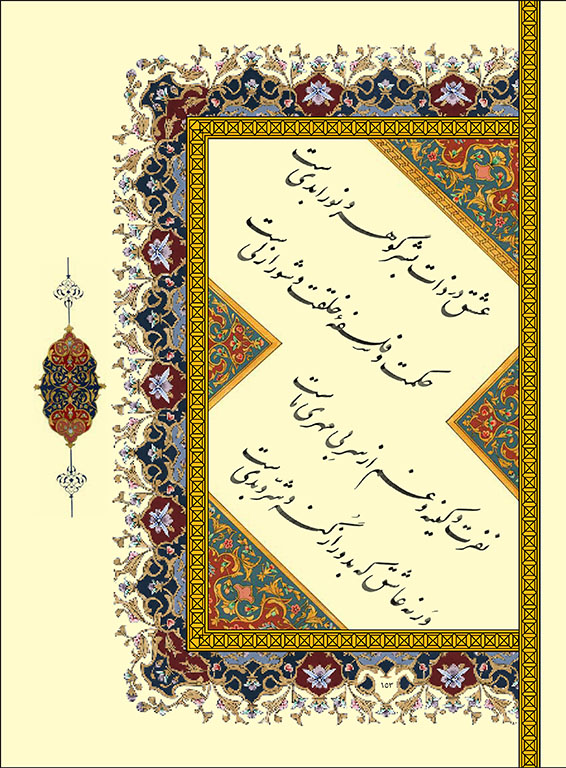 عشق در ذات بشر گوهر و نور ابدی ست
حکمت و فلسفهٔ خلقت و شور ازلی ست
نفرت و کینه و غم از سر بی مهری ماست
ورنه عاشق که به دور از گنه و شر و بدی ست
۱۵۳